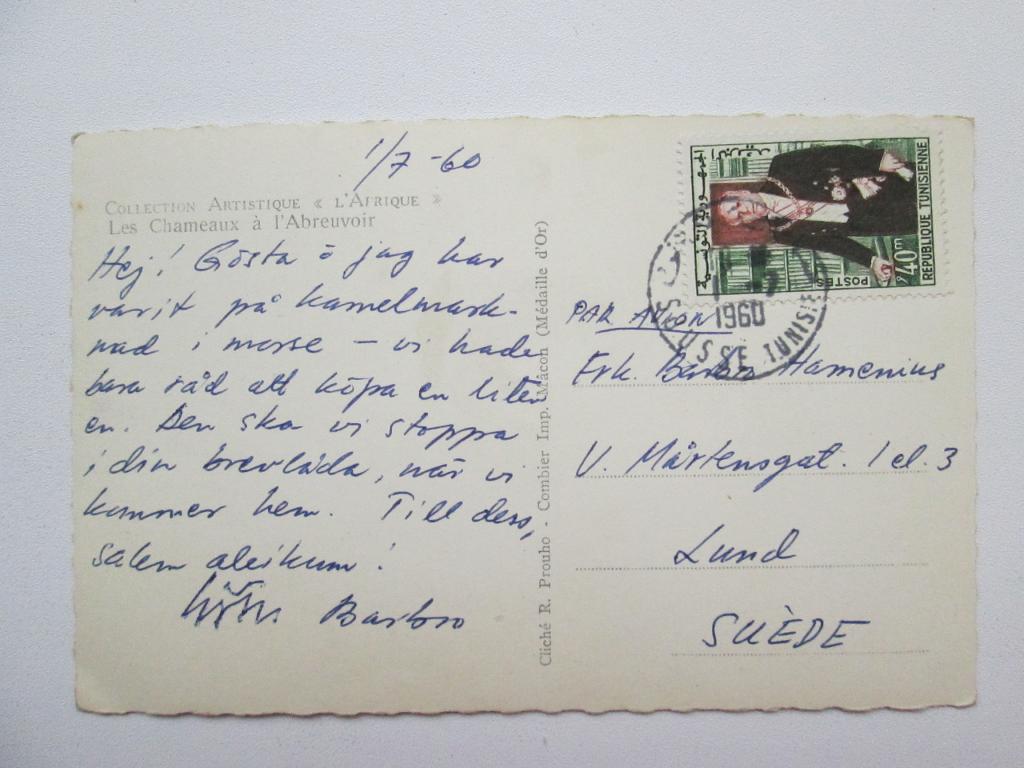 1/7 -60
COLLECTION ARTISTIQUE « L'AFRIQUE »
Les Chameaux à l'Abreuvoir
Hej! Gösta o jag har
varit på kamelmark-
nad i morse – vi hade
bara råd att köpa en liten
en. Den ska vi stoppa
i din brevlåda, när vi
kommer hem. Till dess,
salem aleikum!
Barbro
Cliché R. Prouho - Combier Imp. Mâcon (Médaille d'Or)
الجمهورية التونسية
REPUBLIQUE TUNISIENNE
40m
POSTES
1960
SOUSSE TUNISIE
PAR AVION
Frk. Hamenius
V. Mårtensgat. 1 el. 3
Lund
SUÈDE